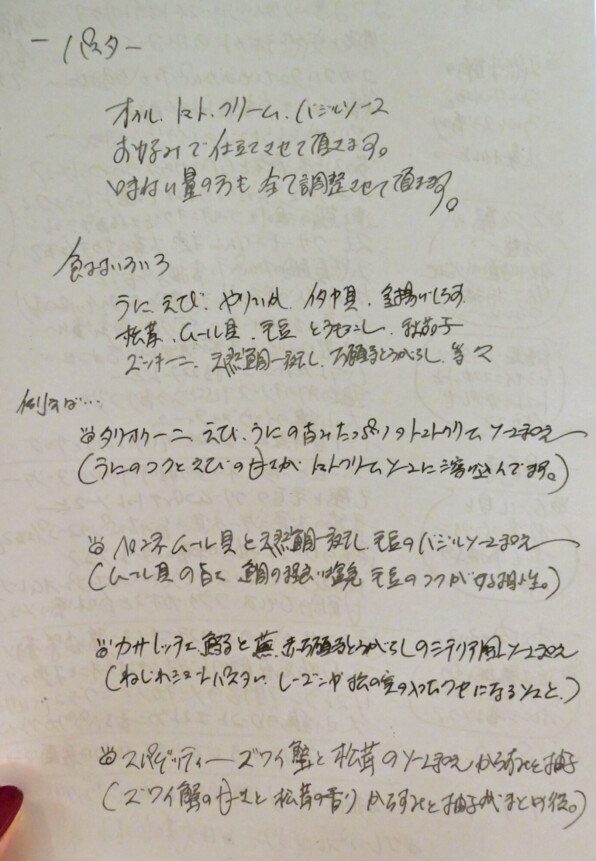 ー パスター
オイル、トマト、クリーム、バジルソース
お好みで仕立てさせて頂きます。
味わい量の方も全て調整させて頂きます。
食材いろいろ
うに、えび、やりいか、帆立貝、釜揚げしらす
松茸、ムール貝、毛豆、とうもろこし、秋茄子
ズッキーニ、天然鯛一夜干し、万願寺とうがらし、等々
例えば…
タリオリーニ、えび、うにの旨みたっぷりのトマトクリームソース和え
(うにのコクとえびの甘さが トマトクリームソースに溶け込んでます。)
ペンネ ムール貝と天然鯛一夜干し 毛豆のバジルソース和え
(ムール貝の旨さ 鯛の 毛豆のコクが相性。)
カサレッチェ と 赤万願寺とうがらしのシチリア風ソース和え
(ねじれショートパスタに レーズンや松の実のやみつきになるソースと。)
スパゲッティーニ ズワイ蟹と松茸のソース和え からすみと柚子
(ズワイ蟹の甘さと松茸の香り からすみと柚子がまとめ役。)